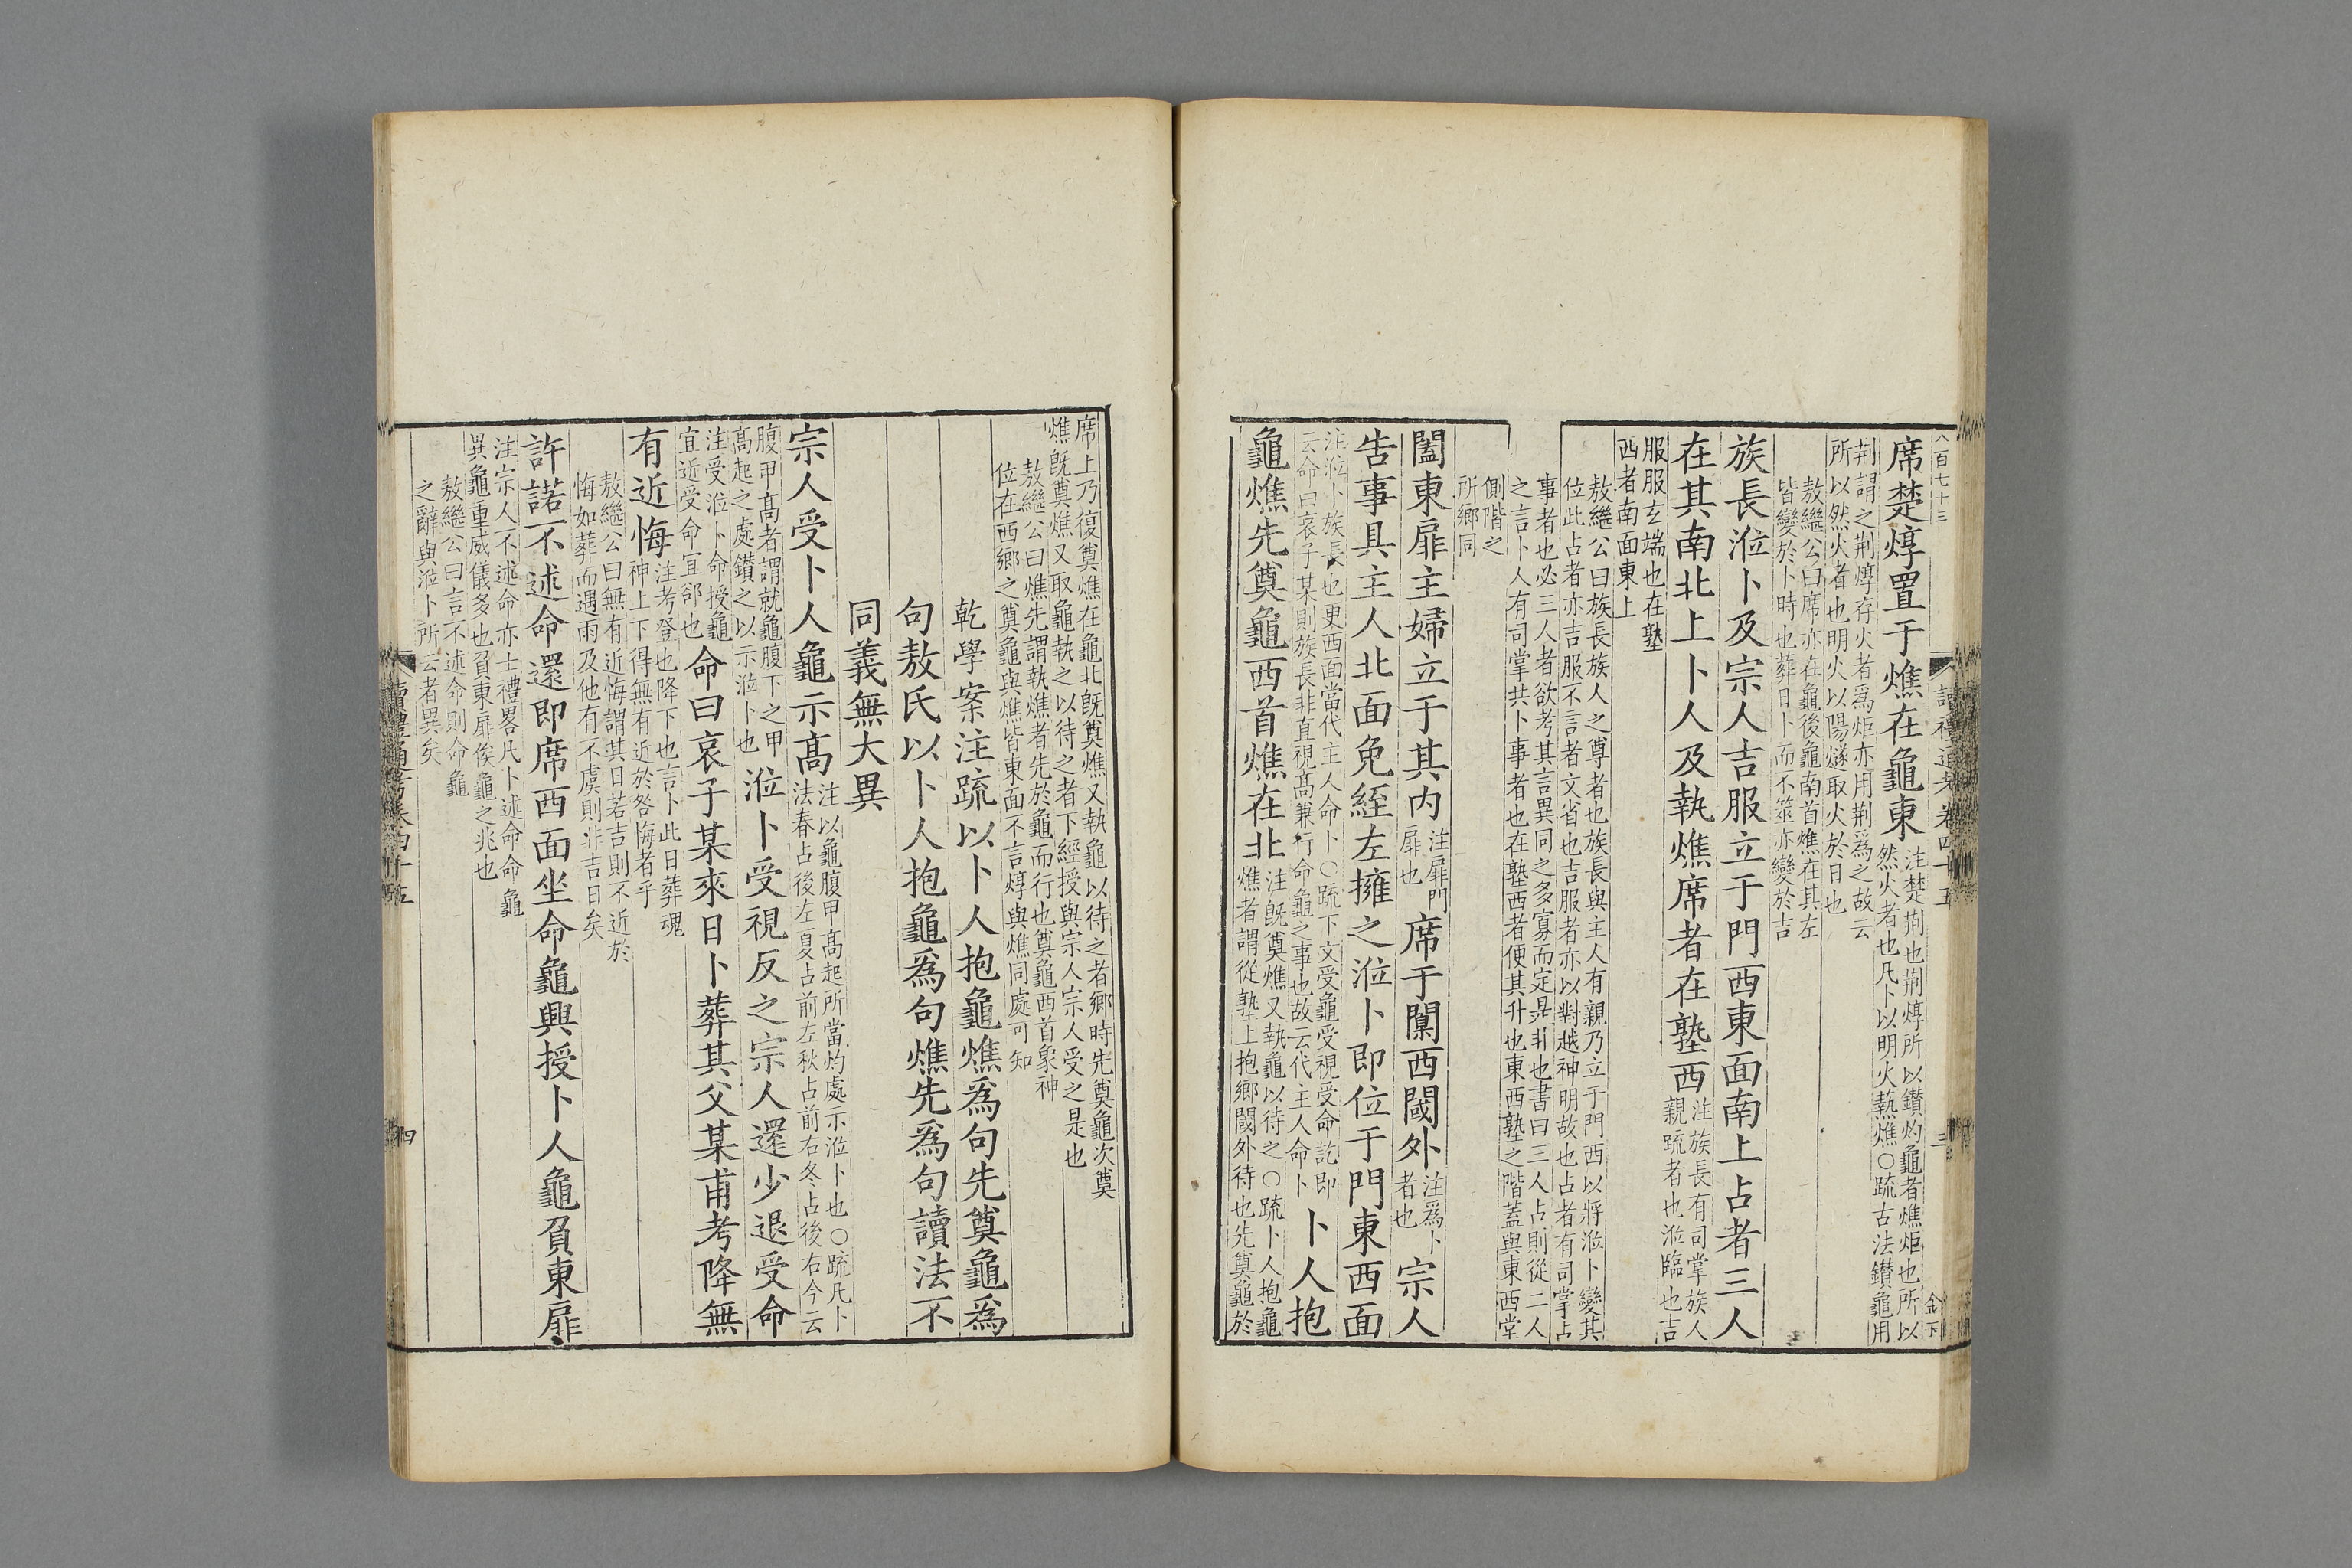 八百七十三
讀禮通考卷四十五
三
金下
席楚焞置于燋在龜東
注楚荆也荆焞所以鑽灼龜者燋炬也所以
然火者也凡卜以明火爇燋○疏古法鑚龜用
荆謂之荆焞存火者爲炬亦用荆爲之故云
所以然火者也明火以陽燧取火於日也
敖繼公曰席亦在龜後龜南首燋在其左
皆變於卜時也葬日卜而不筮亦變於吉
族長涖卜及宗人吉服立于門西東面南上占者三人
在其南北上卜人及執燋席者在塾西
注族長有司掌族人
親疏者也涖臨也吉
服服玄端也在塾
西者南面東上
敖繼公曰族長族人之尊者也族長與主人有親乃立于門西以將涖卜變其
位此占者亦吉服不言者文省也吉服者亦以對越神明故也占者有司掌占
事者也必三人者欲考其言異同之多寡而定是非也書曰三人占則從二人
之言卜人有司掌共卜事者也在塾西者便其升也東西塾之階蓋與東西堂
側階之
所鄉同
闔東扉主婦立于其内
注扉門
扉也
席于闑西閾外
注爲卜
者也
宗人
告事具主人北面免絰左擁之涖卜即位于門東西面
注涖卜族長也更西面當代主人命卜○疏下文受龜受視受命訖即
云命曰哀子某則族長非直視髙兼行命龜之事也故云代主人命卜
卜人抱
龜燋先奠龜西首燋在北
注既奠燋又執龜以待之○疏卜人抱龜
燋者謂從塾上抱鄉閾外待也先奠龜於
席上乃復奠燋在龜北既奠燋又執龜以待之者鄉時先奠龜次奠
燋既奠燋又取龜執之以待之者下經授與宗人宗人受之是也
敖繼公曰燋先謂執燋者先於龜而行也奠龜西首象神
位在西鄉之奠龜與燋皆東面不言焞與燋同處可知
乾學案注疏以卜人抱龜燋爲句先奠龜爲
句敖氏以卜人抱龜爲句燋先爲句讀法不
同義無大異
宗人受卜人龜示髙
注以龜腹甲髙起所當灼處示涖卜也○疏凡卜
法春占後左夏占前左秋占前右冬占後右今云
腹甲髙者謂就龜腹下之甲
髙起之處鑽之以示涖卜也
涖卜受視反之宗人還少退受命
注受涖卜命授龜
宜近受命宜郤也
命曰哀子某來日卜葬其父某甫考降無
有近悔
注考登也降下也言卜此日葬魂
神上下得無有近於咎悔者乎
敖繼公曰無有近悔謂其日若吉則不近於
悔如葬而遇雨及他有不虞則非吉日矣
許諾不述命還即席西面坐命龜興授卜人龜負東扉
注宗人不述命亦士禮畧凡卜述命命龜
異龜重威儀多也負東扉俟龜之兆也
敖繼公曰言不述命則命龜
之辭與涖卜所云者異矣
讀禮通考卷四十五
四